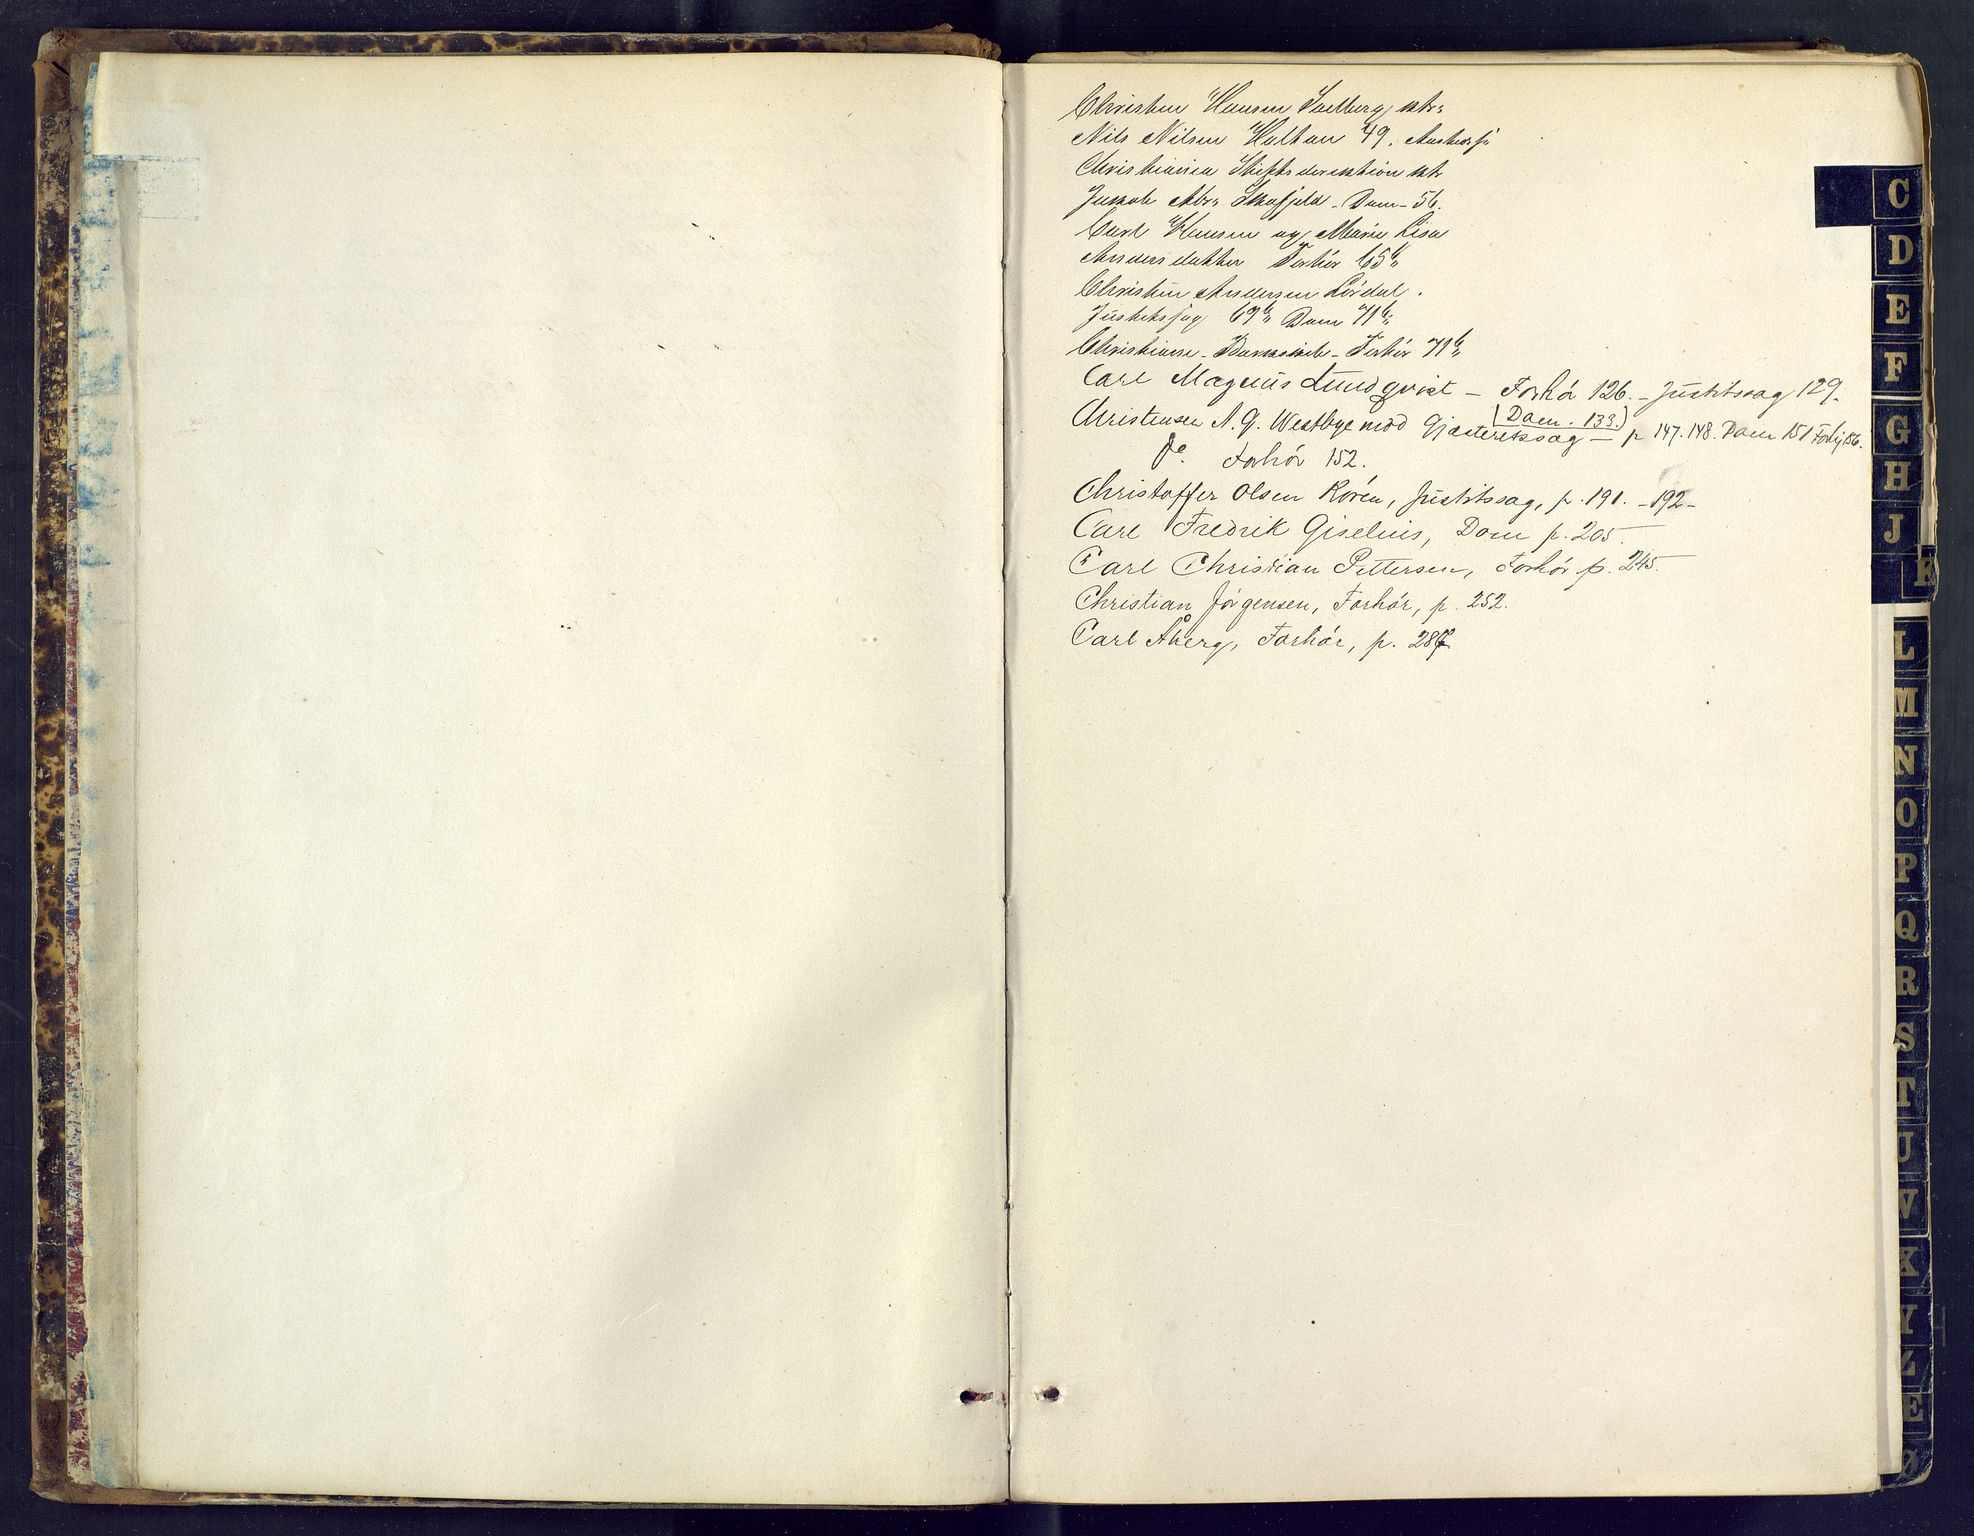 Christen Hansen
Nils Nilsen Haltan 49.
Christiania Stiftsdirektion ctr
Dom 56.
Carl Hansen og Marie Lisa
Andersdatter Forhör 65b
Christen Andersen Lördal.
Justitssag 69b Dom 71b
Christiane - Forhör 71b
Carl Magnus Lundqvist - Forhör 126. - Justitssag 129.
(Dom. 133)
Christensen A. G. Westbye mod Gjæsteretssag - p 147. 148. Dom 151 Forlig 156.
Do. Forhör 152.
Christoffer Olsen Roren, Justitssag, p. 191. -192-
Carl Fredrik Giselius, Dom p. 205.
Carl Christian Pettersen, Forhör p. 245.
Christian Jörgensen, Forhör, p. 252.
Carl Åberg, Forhör, p. 287
C
D
E
F
G
H
J
K
L
M
N
O
P
Q
R
S
T
U
V
X
Y
Z
Æ
Ø